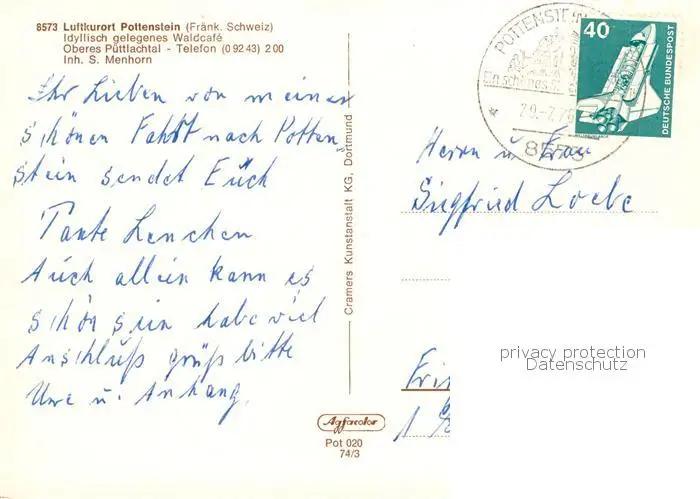 8573 Luftkurort Pottenstein (Fränk. Schweiz)
Idyllisch gelegenes Waldcafé
Oberes Püttlachtal - Telefon (0 92 43) 2 00
Inh. S. Menhorn
Ihr Lieben von meiner
schönen Fahrt nach Potten
stein sendet Euch
Tante Lenchen
Auch allein kann es
schön sein habe viel
Anschluß grüß bitte
Uwe u. Anhang.
Cramers Kunstanstalt KG, Dortmund
Agfacolor
Pot 020
74/3
POTTENSTEIN
8573
40
DEUTSCHE BUNDESPOST
Herrn u Frau
Siegfried Loebe
privacy protection
Datenschutz